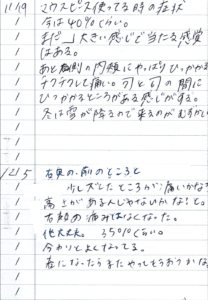 11/19 マウスピース使ってる時の症状
今は40%くらい。
まだ 」大きい感じで当たる感覚
はある。
あと 側の内頬にやっぱりひっかか
チクチクして痛い。 と の間に
ひっかかるところがある感じがする。
冬は雪が降るので来るのがむずかし
12/5 右奥の前のところと
少しズレたところが、痛いかな
高さがあるんじゃないかなと。
右顔の痛みはなくなった。
他大丈夫。35%くらい。
合わりと良くなってる。
春になったらまたやってもらおうかな